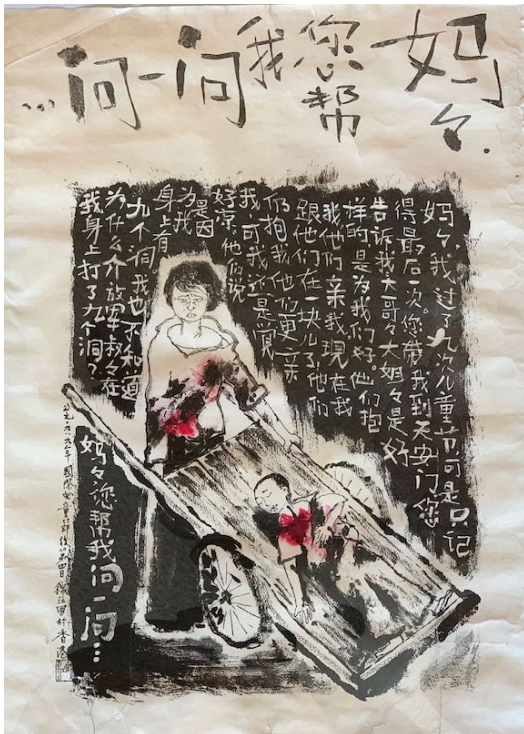 妈々.您帮我问一问...
妈々,我过了九次儿童节可是只记
得最后一次。您带我到天安门您
告诉我大哥々大姐々是好
样的是为我们好。他们抱
我他们亲我现在我
跟他们在一块儿了他们
仍抱我他们更亲
我,可我还是觉
好凉,他们说
是因
为我
身上有
九个洞我也不知道
为什么介放军叔々在
我身上打了九个洞?
妈々您帮我问一问...
公元一九八九年國際兒童節後第四日 於香港